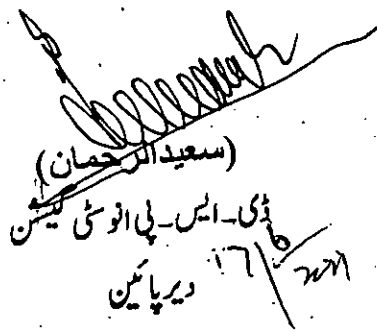 (سعید الرحمان)
ڈی-ایس-پی انوسٹی گیشن
دیر پائین